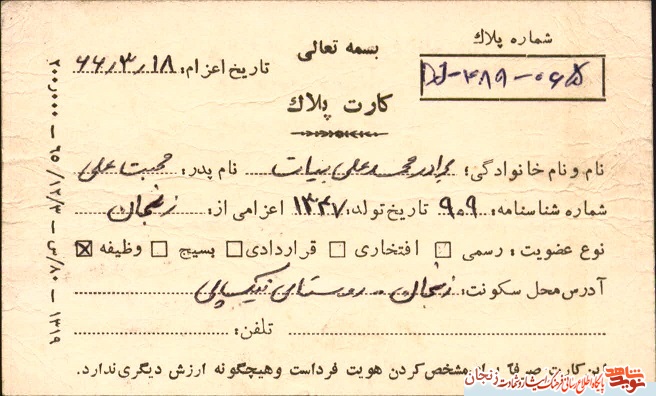 بسمه تعالی
شماره پلاك
DJ-489-065
تاریخ اعزام: 66/3/18
کارت پلاك
نام و نام خانوادگی: برادر محمد علی بیات نام پدر: محبت علی
شماره شناسنامه: ۹۰۹ تاریخ تولد: ۱۳۴۷ اعزامی از: زنجان
نوع عضویت: رسمی □ افتخاری □ قراردادی □ بسیج □ وظیفه ☒
آدرس محل سکونت: زنجان - روستای
تلفن:
این کارت صرفا برای مشخص کردن هویت فرد است و هیچگونه ارزش دیگری ندارد.
۲۰۰٫۰۰۰ – ۶۵/۱۲/۳ – س/۸۰ – ۱۳۱۹
نوید شاهد
پایگاه اطلاع رسانی فرهنگ ایثار و شهادت زنجان